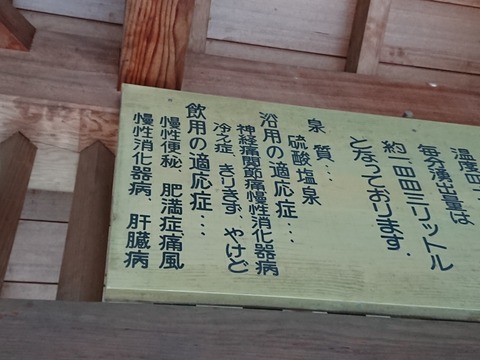 温度四
毎分湧出量は
約一四四三リットル
となっております.
泉 質…
硫酸塩泉
浴用の適応症…
神経痛関節痛慢性消化器病
冷え症、きりきず、やけど
飲用の適応症…
慢性便秘、肥満症痛風
慢性消化器病、肝臓病